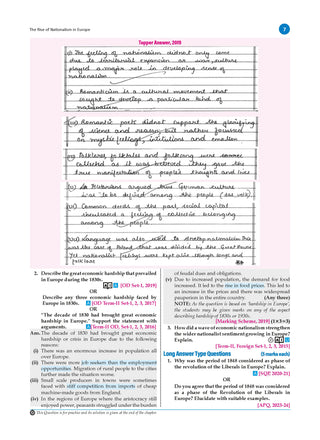 The Rise of Nationalism in Europe
7
Topper Answer, 2019
(i) The feeling of nationalism did not only come
due to territorial expansion or war, culture
played a major role in developing sense of
nationalism
(ii) Romanticism is a cultural movement that
sought to develop a particular kind of
nationalism
(iii) Romantic poets did not support the glorifying
of science and reason, but rather focused
on mystic feelings, intuitions and emotion
folktales and folksong were
collected as it was believed they gave the
true manifestation of people's thoughts and lives
(v) argued true German culture
was to be among the people (das volk)
of the past, social capital
a feeling of collective belonging
among the people
(vii) Language was also used to develop nationalism. This
was the case of Poland, that was divided by the Great Powers
Yet nationalist feelings were kept alive through songs and
folk lore
2. Describe the great economic hardship that prevailed
in Europe during the 1830s.
[OD Set-I, 2019]
OR
Describe any three economic hardship faced by
Europe in 1830s. [OD Term-II Set-1, 2, 3, 2017]
OR
"The decade of 1830 had brought great economic
hardship in Europe." Support the statement with
arguments. [Term-II OD, Set-1, 2, 3, 2016]
Ans. The decade of 1830 had brought great economic
hardship or crisis in Europe due to the following
reasons:
(i) There was an enormous increase in population all
over Europe.
(ii) There were more job seekers than the employment
opportunities. Migration of rural people to the cities
further made the situation worse.
(iii) Small scale producers in towns were sometimes
faced with stiff competition from imports of cheap
machine-made goods from England.
(iv) In the regions of Europe where the aristocracy still
enjoyed power, peasants struggled under the burden
of feudal dues and obligations.
(v) Due to increased population, the demand for food
increased. It led to the rise in food prices. This led to
an increase in the prices and there was widespread
pauperism in the entire country. (Any three)
NOTE: As the question is based on 'hardship in Europe',
the students may be given marks on any of the aspect
describing hardship of 1830s or 1930s.
[Marking Scheme, 2019] (1×3=3)
3. How did a wave of economic nationalism strengthen
the wider nationalist sentiment growing in Europe?
Explain.
[Term-II, Foreign Set-1, 2, 3, 2015]
Long Answer Type Questions (5 marks each)
1. Why was the period of 1848 considered as phase of
the revolution of the Liberals in Europe? Explain.
[SQP, 2020-21]
OR
Do you agree that the period of 1848 was considered
as a Phase of the Revolution of the Liberals in
Europe? Elucidate with suitable examples.
[APQ, 2023-24]
This Question is for practice and its solution is given at the end of the chapter.